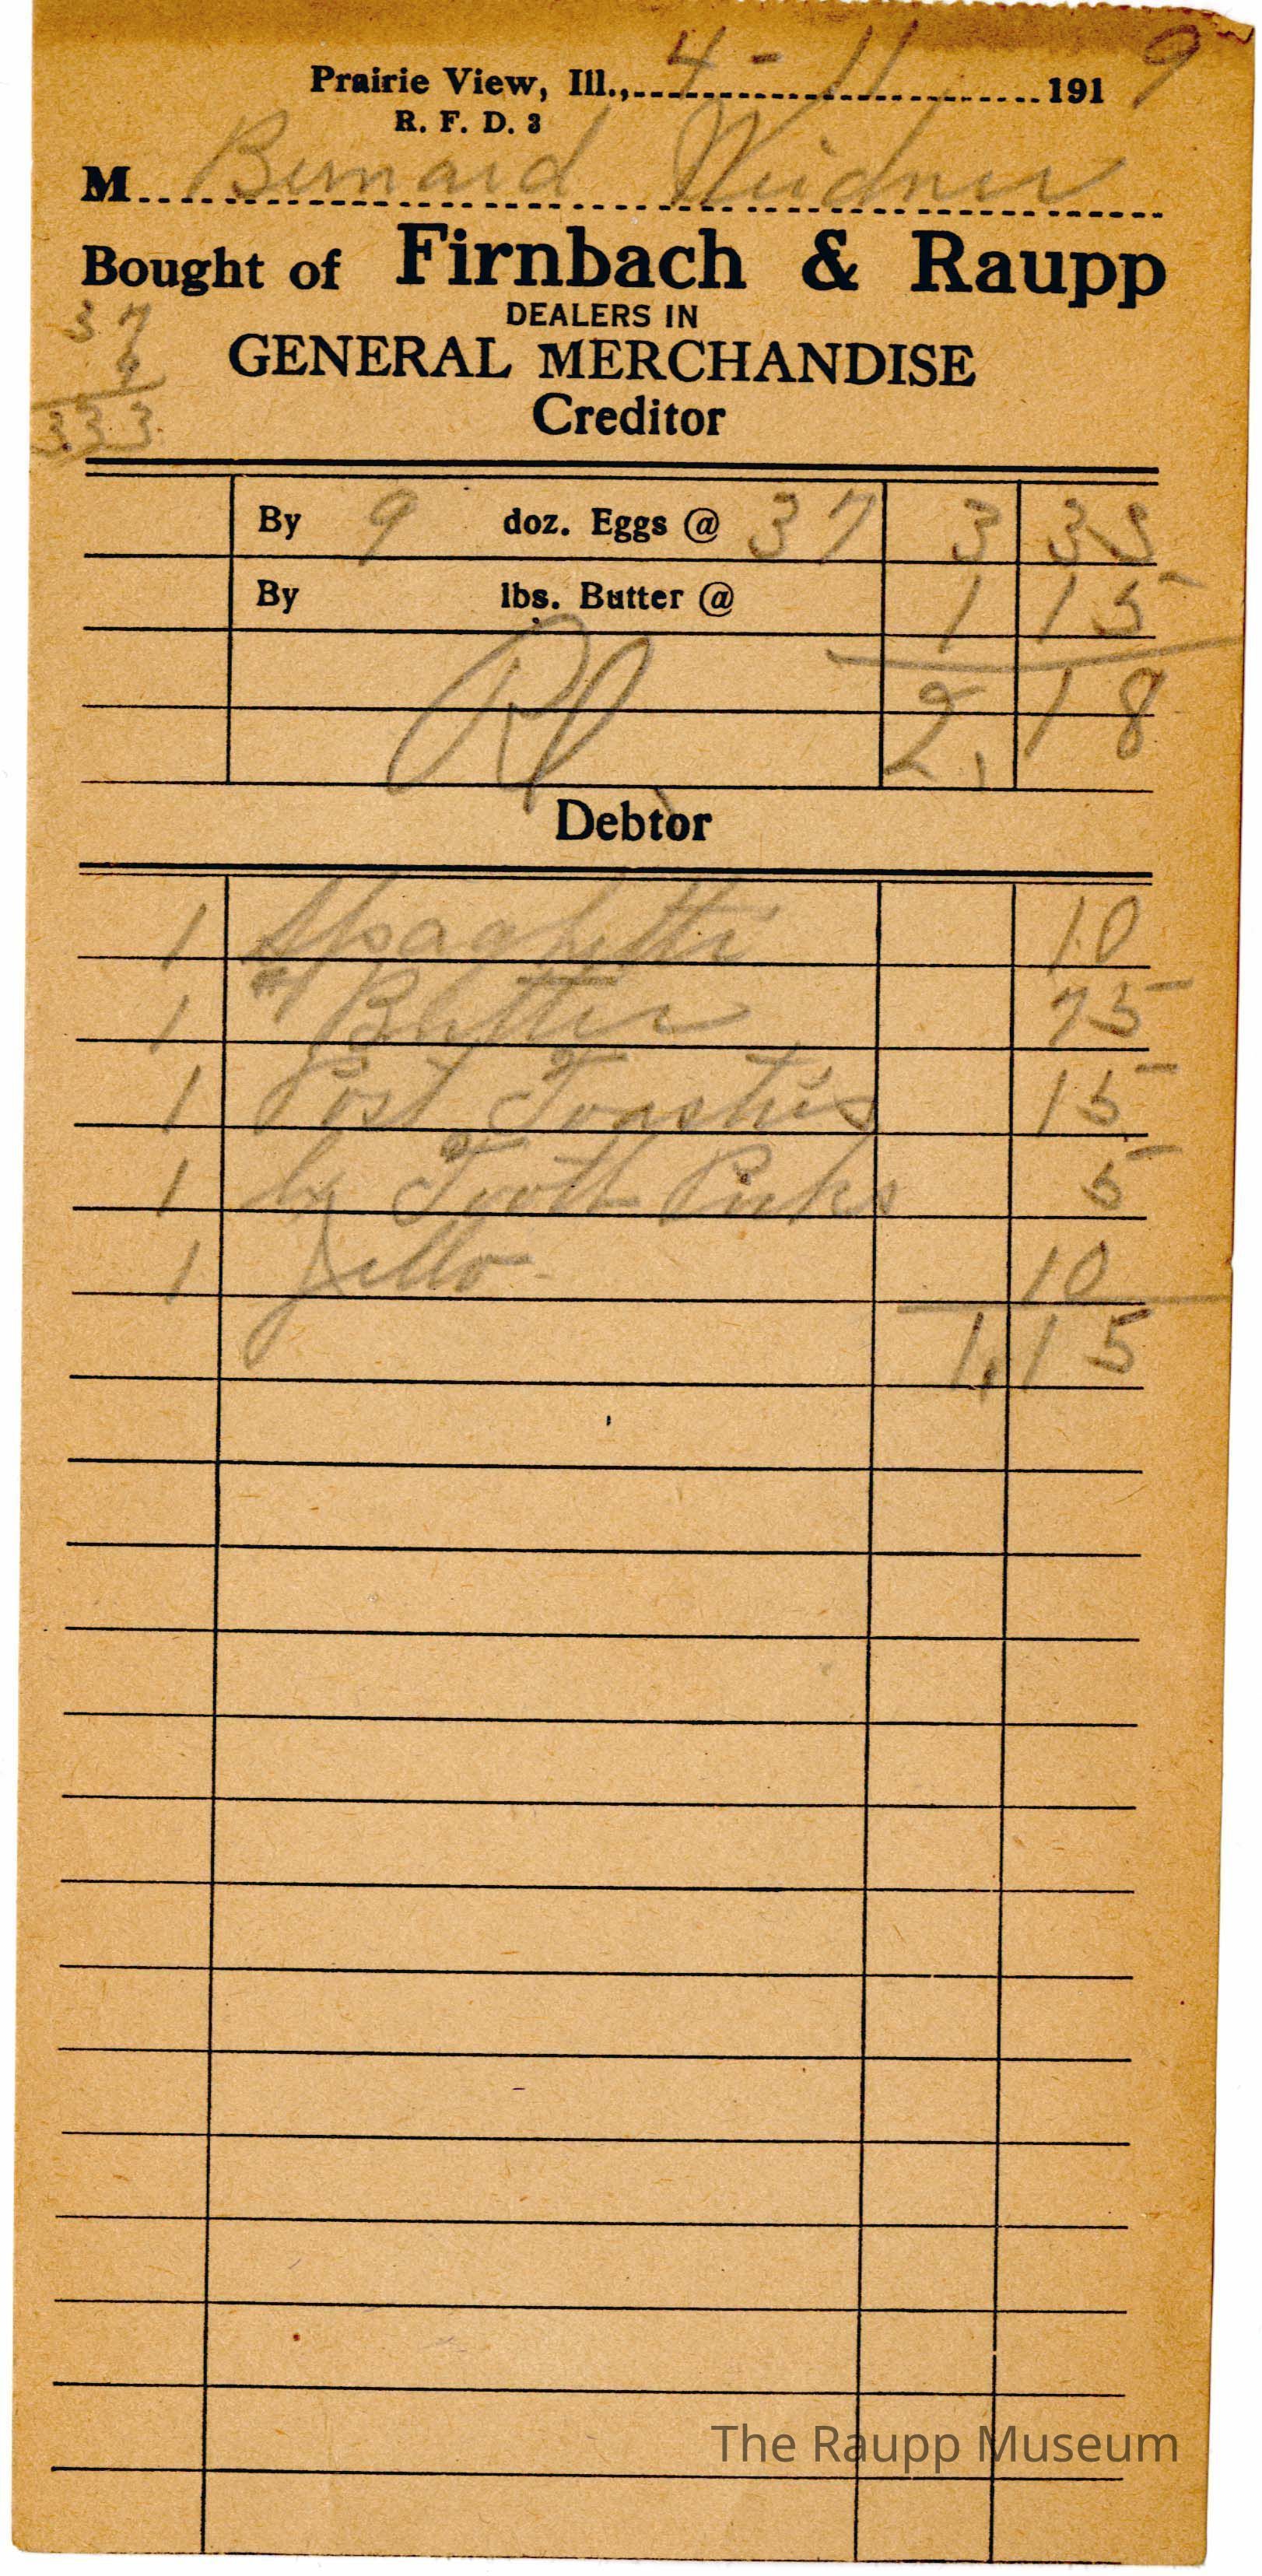 Prairie View, Ill., 4 - 11 1919
R. F. D. 3
M Bernard Weidner
Bought of Firnbach & Raupp
DEALERS IN
GENERAL MERCHANDISE
Creditor
37
9
333
By 9 doz. Eggs @ 37 3 33
By lbs. Butter @ 1 15
2,18
Debtor
1 Spaghetti 10
1 #1 Butter 75
1 Post Toasties 15
1 bx Tooth Picks 5
1 Jello 10
1,15
The Raupp Museum